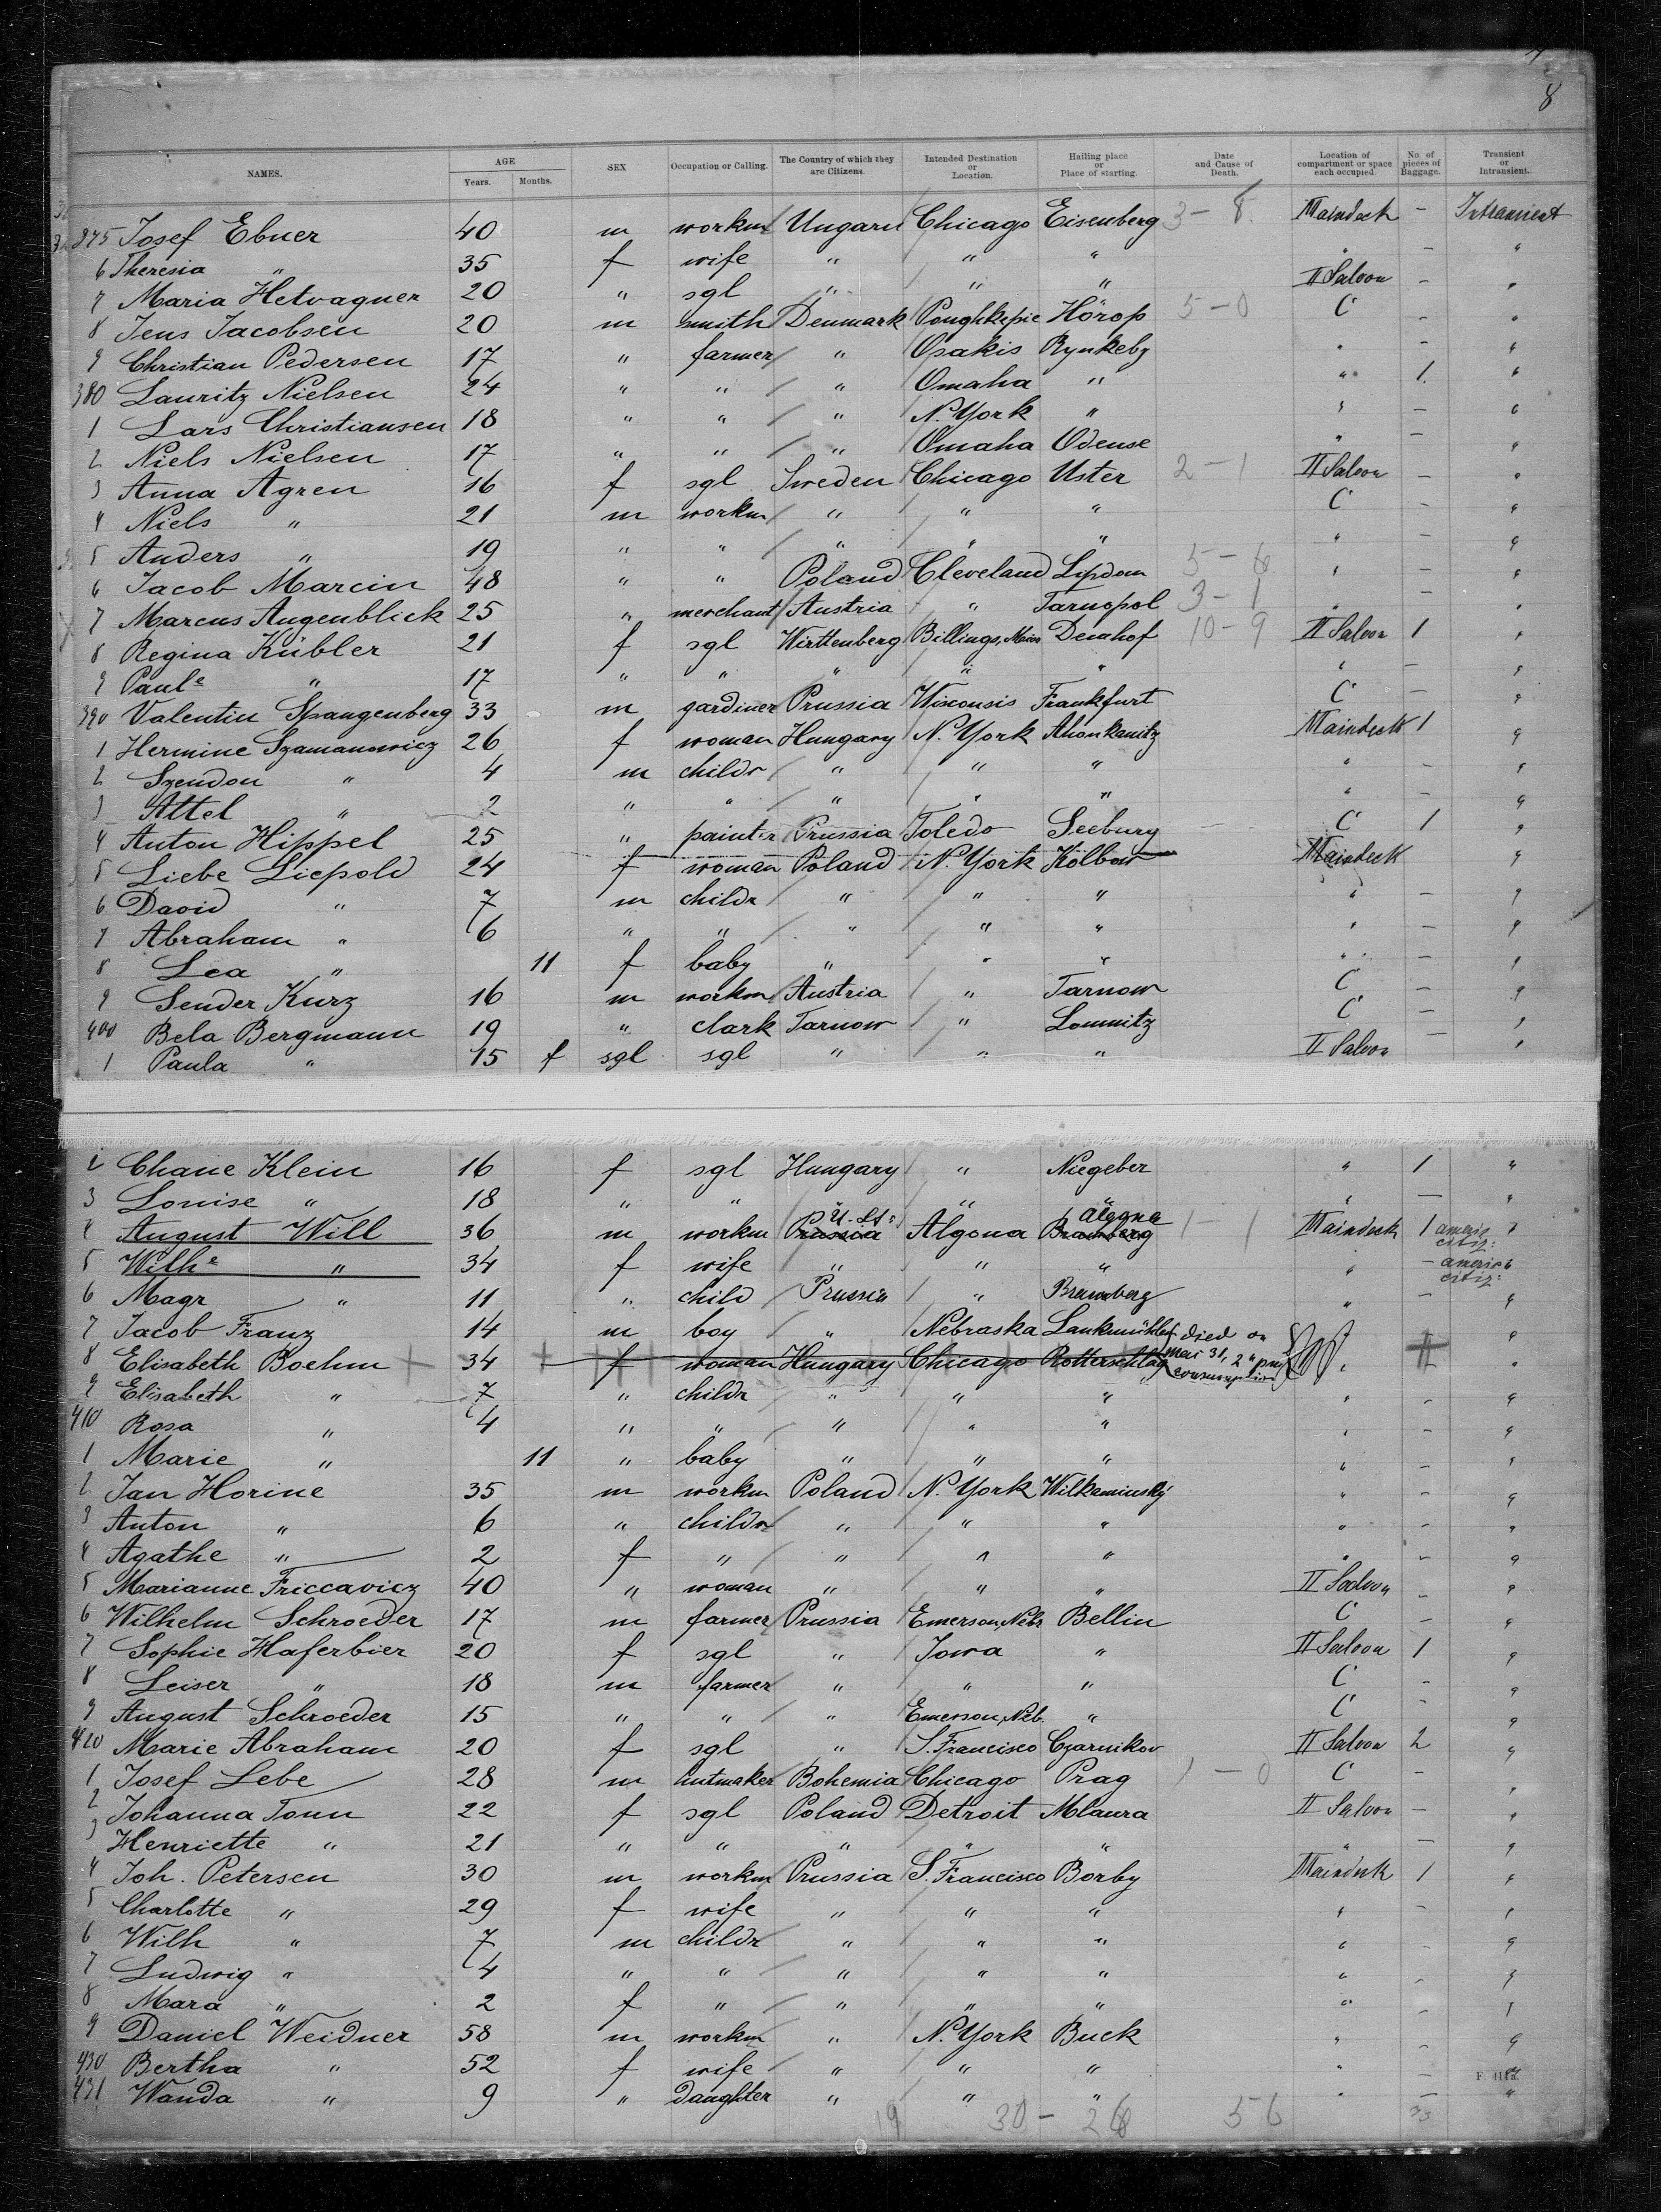 8
NAMES. AGE Years. Months. SEX Occupation or Calling. The Country of which they are Citizens. Intended Destination or Location. Hailing place or Place of starting. Date and Cause of Death. Location of compartment or space each occupied. No. of pieces of Baggage. Transient or Intransient.
375 Josef Ebner 40 m workm Ungarn Chicago Eisenberg 3 - 8 Maindeck - Intransient
6 Theresia " 35 f wife " " " " - "
7 Maria Hetvagner 20 " sgl " " " II Saloon - "
8 Jens Jacobsen 20 m smith Denmark Poughkepie Hörop 5 - 0 C - "
9 Christian Pedersen 17 " farmer " Osakis Rynkeby " - "
380 Lauritz Nielsen 24 " " " Omaha " " 1 "
1 Lars Christiansen 18 " " " N. York " " - "
2 Niels Nielsen 17 " " " Omaha Odense " - "
3 Anna Agren 16 f sgl Sweden Chicago Uster 2 - 1 II Saloon - "
4 Niels " 21 m workm " " " C - "
5 Anders " 19 " " " " " " - "
6 Jacob Marcin 48 " " Poland Cleveland Lipdom 5 - " - "
7 Marcus Augenblick 25 " merchant Austria " Tarnopol 3 - 1 " - "
8 Regina Kübler 21 f sgl Wirttenberg Billings, Demhof 10 - 9 II Saloon 1 "
9 Paule " 17 " " " " " " - "
390 Valentin Spangenberg 33 m gardiner Prussia Wisconsis Frankfurt C - "
1 Hermine Szamanowicz 26 f woman Hungary N. York Ahonkanitz Maindeck 1 "
2 Szendon " 4 m childr " " " " - "
3 Attel " 2 " " " " " " - "
4 Anton Hippel 25 " painter Prussia Toledo Seeburg C 1 "
5 Liebe Liepold 24 f woman Poland N. York Kolbow Maindeck "
6 David " 7 m childr " " " " - "
7 Abraham " 6 " " " " " " - "
8 Lea " 11 f baby " " " " - "
9 Sender Kurz 16 m workm Austria " Tarnow C - "
400 Bela Bergmann 19 " clark Tarnow " Lomnitz C - "
1 Paula " 15 f sgl sgl " " " II Saloon "
2 Chane Klein 16 f sgl Hungary " Niegeber " 1 "
3 Louise " 18 " " " " " " - "
4 August Will 36 m workm Prussia U. St. Algona Bramberg Algona 1 - 1 Maindeck 1 americ citiz: "
5 Wilhe " 34 f wife " " " " - americ citiz: "
6 Magr " 11 " child Prussia " Bramberg " - "
7 Jacob Franz 14 m boy " Nebraska Lankmühle "
8 Elisabeth Boehm 34 f woman Hungary Chicago Rotterschlag died on Mai 31, 2 " pm consumption "
9 Elisabeth " 7 " childr " " " " - "
410 Rosa " 4 " " " " " " - "
1 Marie " 11 " baby " " " " - "
2 Jan Horine 35 m workm Poland N. York Wilkaminsky " - "
3 Anton " 6 " childr " " " " - "
4 Agathe " 2 f " " " " " - "
5 Marianne Friccavicz 40 " woman " " " II Saloon - "
6 Wilhelm Schroeder 17 m farmer Prussia Emerson, Nebr Bellin C - "
7 Sophie Haferbier 20 f sgl " Jowa " II Saloon 1 "
8 Leiser " 18 m farmer " " " C - "
9 August Schroeder 15 " " " Emerson, Neb. " C - "
420 Marie Abraham 20 f sgl " S. Francisco Czarnikov II Saloon 2 "
1 Josef Lebe 28 m hutmaker Bohemia Chicago Prag 1 - 0 C - "
2 Johanna Tonn 22 f sgl Poland Detroit Mlaura II Saloon - "
3 Henriette " 21 " " " " " " - "
4 Joh. Petersen 30 m workm Prussia S. Francisco Borby Maindeck 1 "
5 Charlotte " 29 f wife " " " " - "
6 Wilh " 7 m childr " " " " - "
7 Ludwig " 4 " " " " " " - "
8 Mara " 2 f " " " " " - "
9 Daniel Weidner 58 m workm " N. York Buck " - "
430 Bertha " 52 f wife " " " " - "
431 Wanda " 9 " daughter " " " " - "
19 30 - 26 56